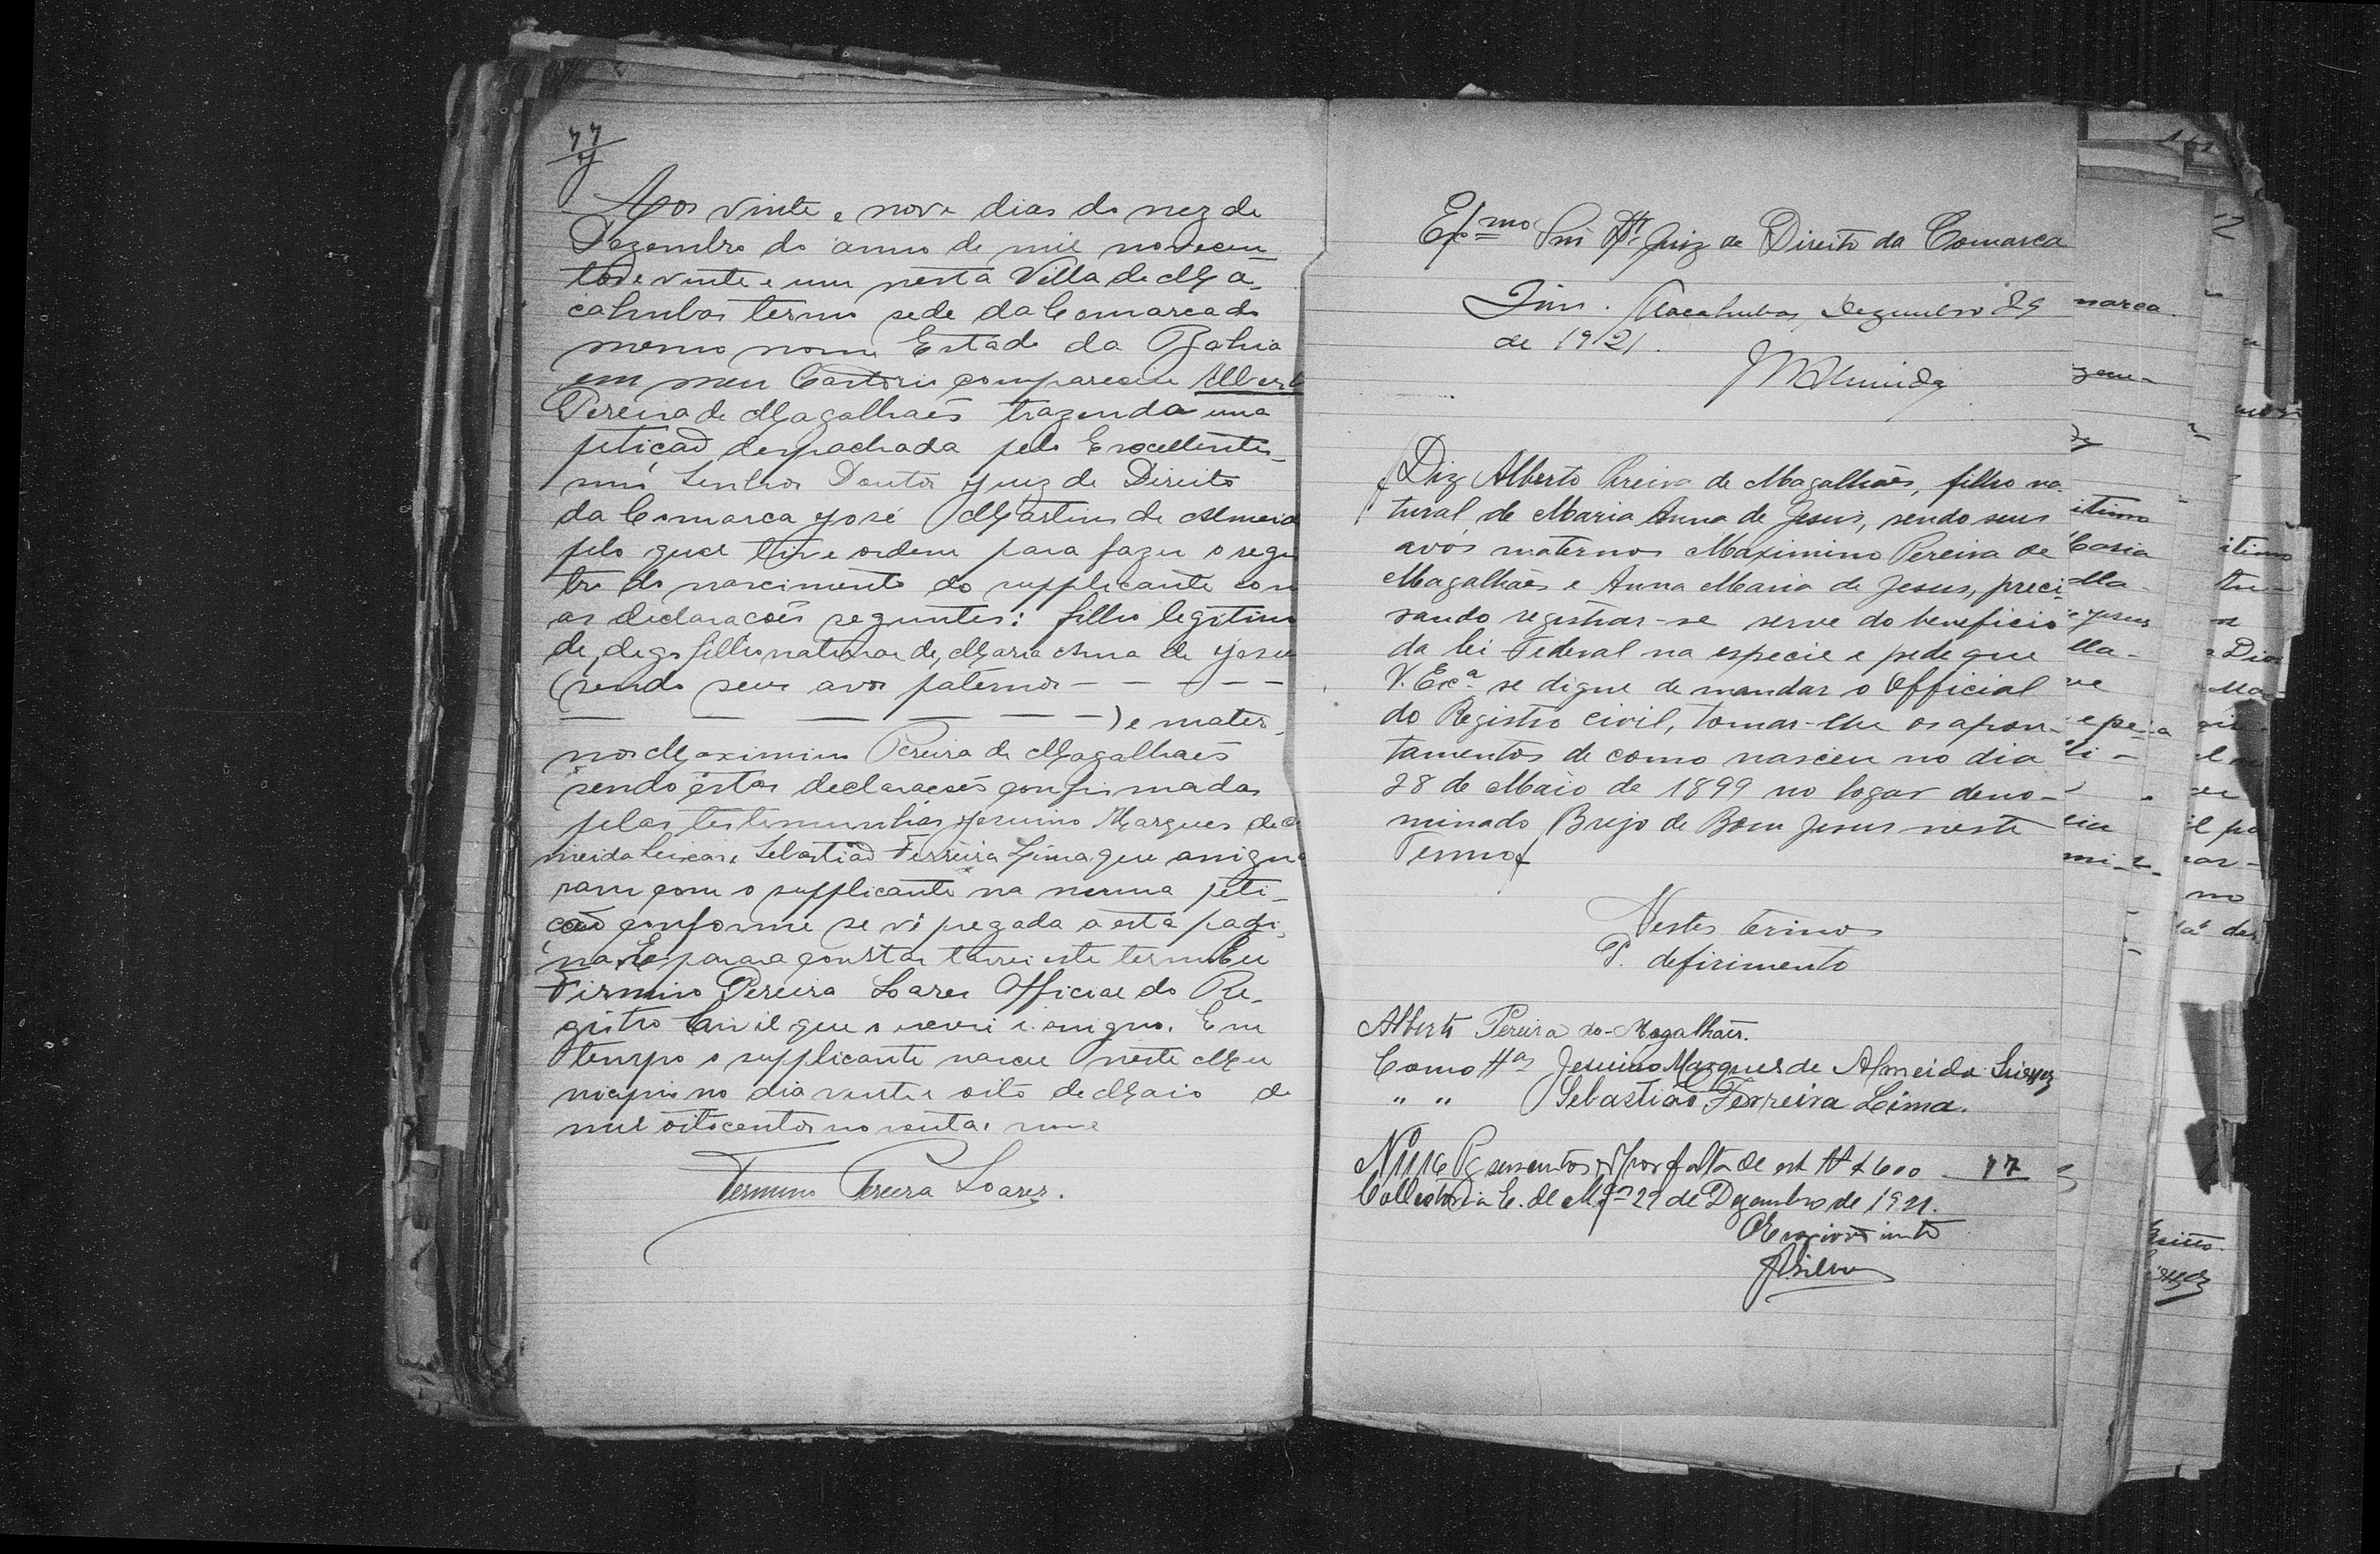 77
Aos vinte e nove dias do mez de
Dezembro do anno de mil novecen-
tos e vinte e um nesta Villa de Ma-
cahubas termo sede da Comarca do
mesmo nome Estado da Bahia
em meu Cartorio compareceu Alberto
Pereira de Magalhaes trazendo uma
petiçaõ despachada pelo Excellentis-
simo Senhor Doutor Juiz de Direito
da Comarca José Martins de Almeida
pelo qual tive ordem para fazer o regis
tro do nascimento do supplicante com
as declaracoẽs seguintes: filho legitimo
de, digo filho natural de, Maria Anna de Jesus
(sendo seus avos paternos - - - - -
— — — — — —) e mater-
nos Maximino Pereira de Magalhaes
sendo estas declaracoẽs confirmadas
pelas testemunhas Jesuino Marques de Al
meida e Sebastiaõ Ferreira Lima que assigna
ram com o supplicante na mesma peti-
çaõ conforme se vê pregada a esta pagi-
na. E para constar lavrei este termo Eu
Firmino Pereira Soares Official do Re-
gistro Civil que o escrevi e assigno. Em
tempo o supplicante nasceu neste Mu
nicipio no dia vinte e oito de Maio de
mil oitocentos noventa e nove
Firmino Pereira Soares.
Exmo Snr Dr. Juiz de Direito da Comarca
Sim. Macahubas, Dezembro 29
de 1921.
JMAlmeida
Diz Alberto Pereira de Magalhães, filho na-
tural de Maria Anna de Jesus, sendo seus
avós maternos Maximino Pereira de
Magalhães e Anna Maria de Jesus, preci-
sando registrar-se serve do beneficio
da lei Federal na especie e pede que
V. Excª se digne de mandar o Official
do Registro Civil, tomar-lhe os apon-
tamentos de como nasceu no dia
28 de Maio de 1899 no logar deno-
minado Brejo de Bom Jesus neste
Termo
Nestes termos
P. deferimento
Alberto Pereira de Magalhães.
Como ttas Jesuino Marques de Almeida
" " Sebastião Ferreira Lima.
Nº 1116 Pg seiscentos rs por falta de est $600 77
Collectoria E. de 29 de Dezembro de 1921.